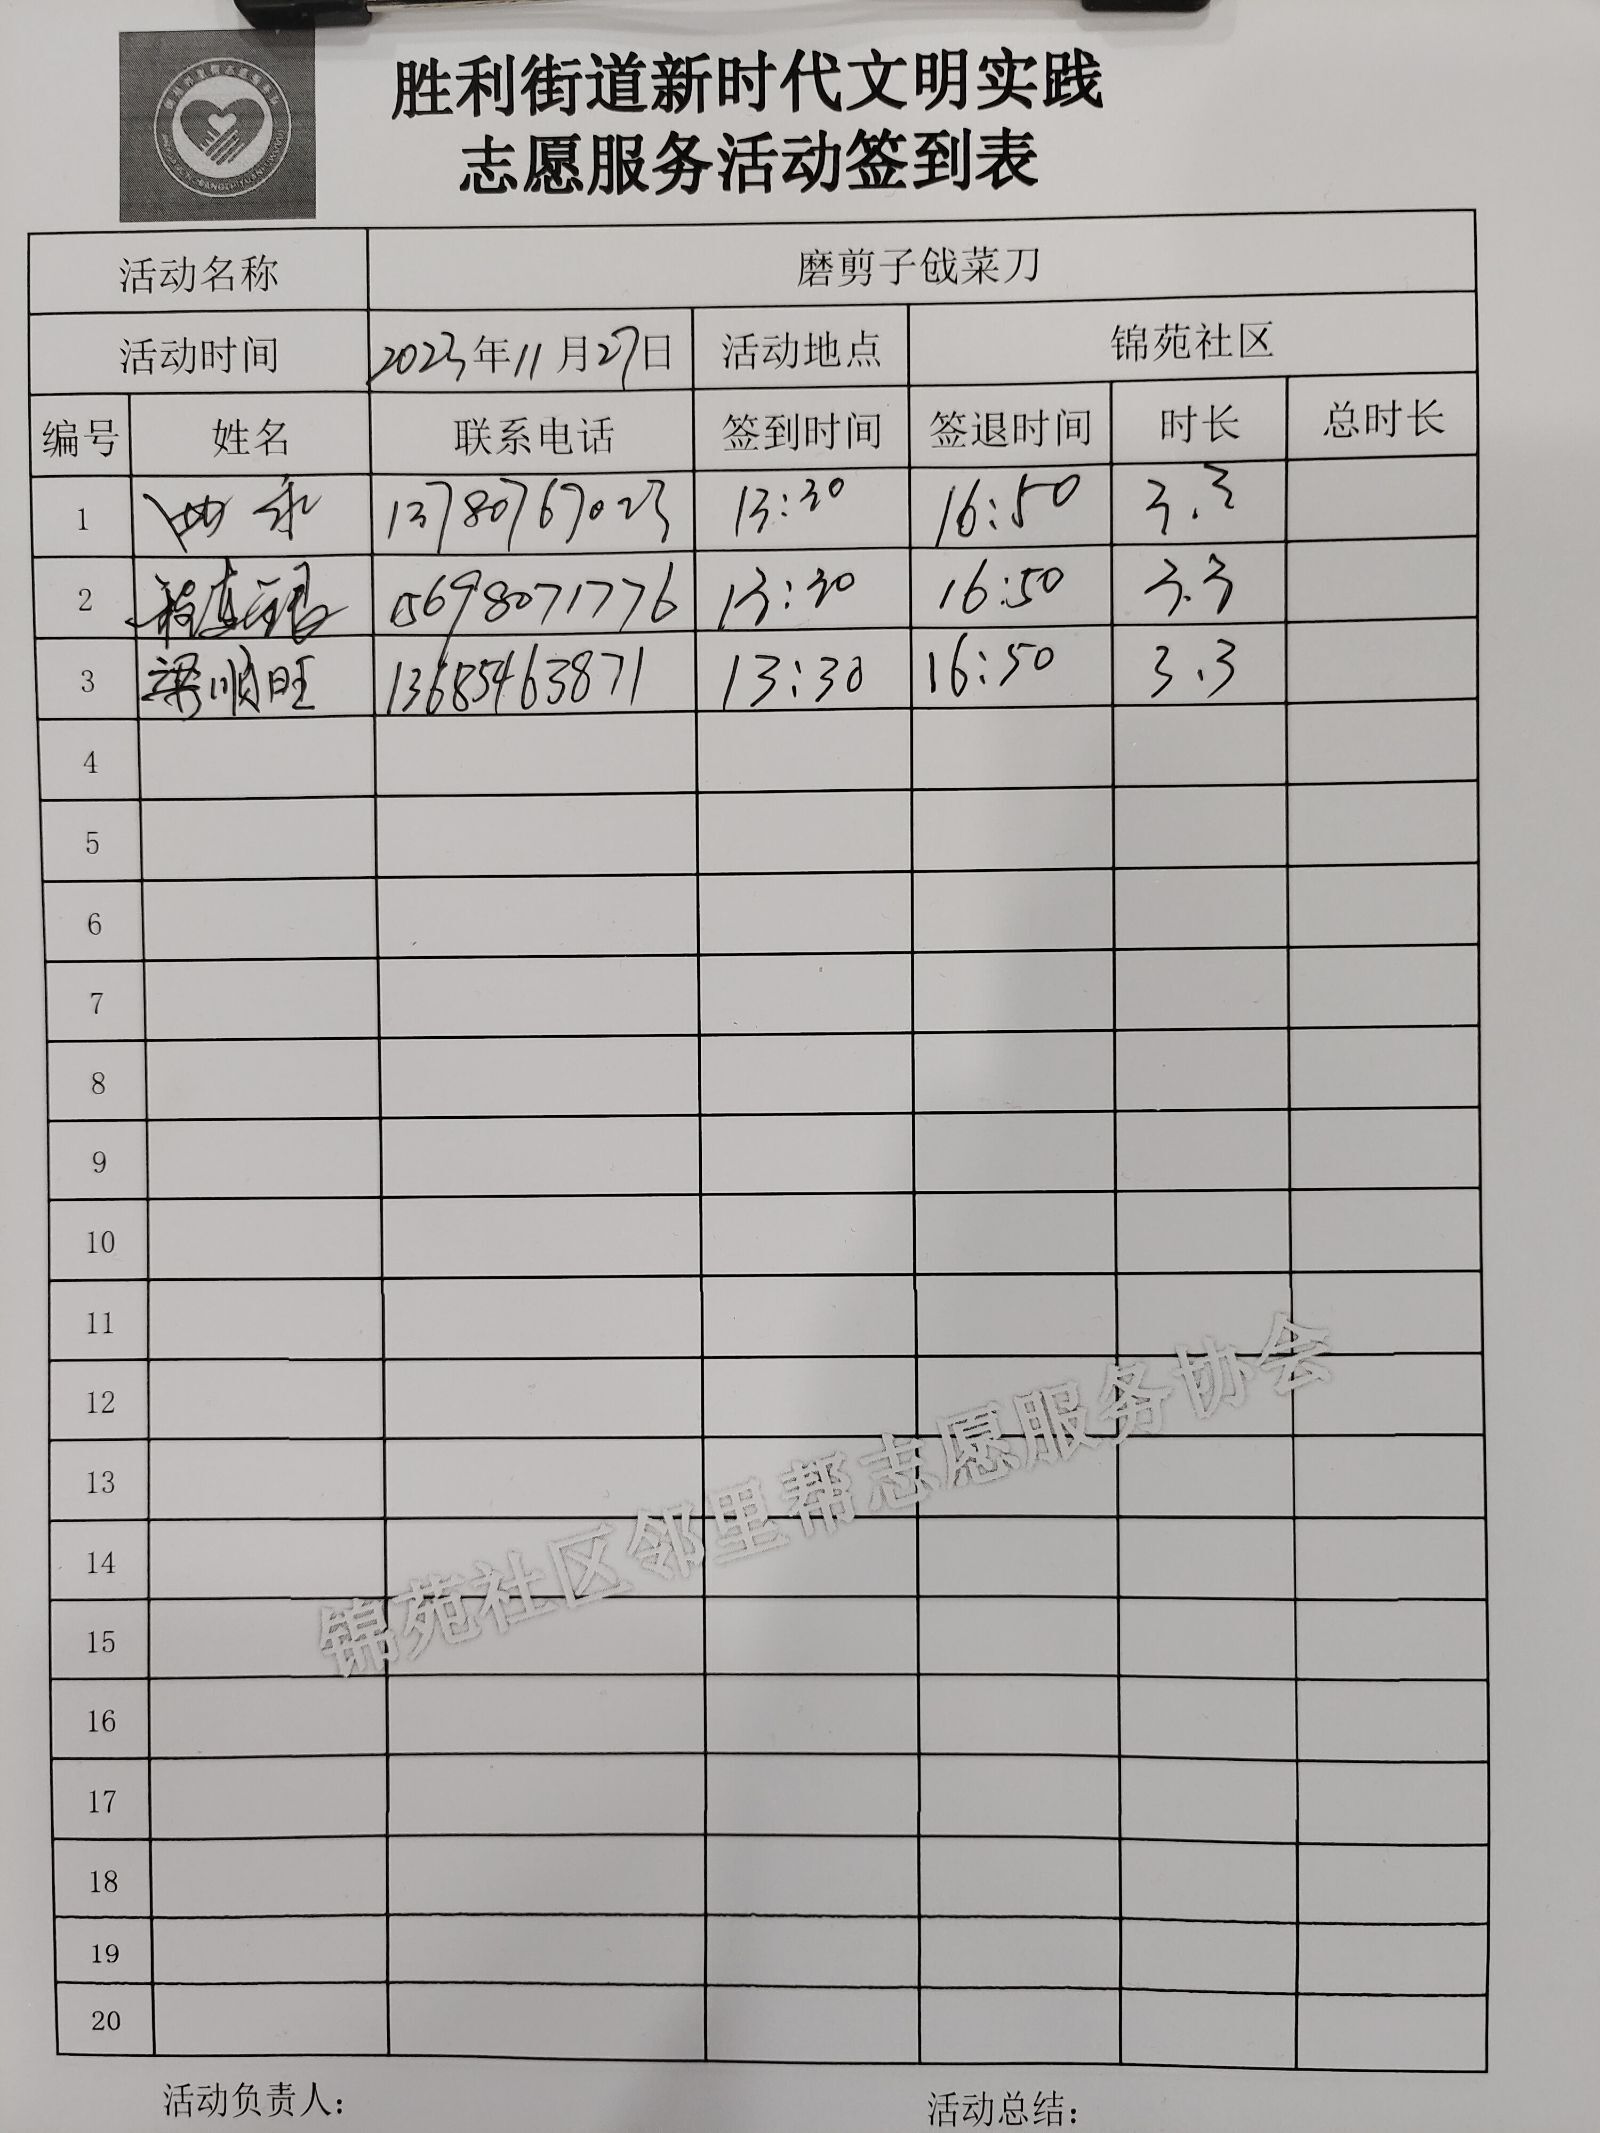 胜利街道新时代文明实践
志愿服务活动签到表
活动名称 磨剪子戗菜刀
活动时间 2023年11月27日 活动地点 锦苑社区
编号 姓名 联系电话 签到时间 签退时间 时长 总时长
1 13780767023 13:30 16:50 3.3
2 15698071776 13:30 16:50 3.3
3 梁顺旺 13685463871 13:30 16:50 3.3
4
5
6
7
8
9
10
11
12
13
14
15
16
17
18
19
20
锦苑社区邻里帮志愿服务协会
活动负责人: 活动总结: